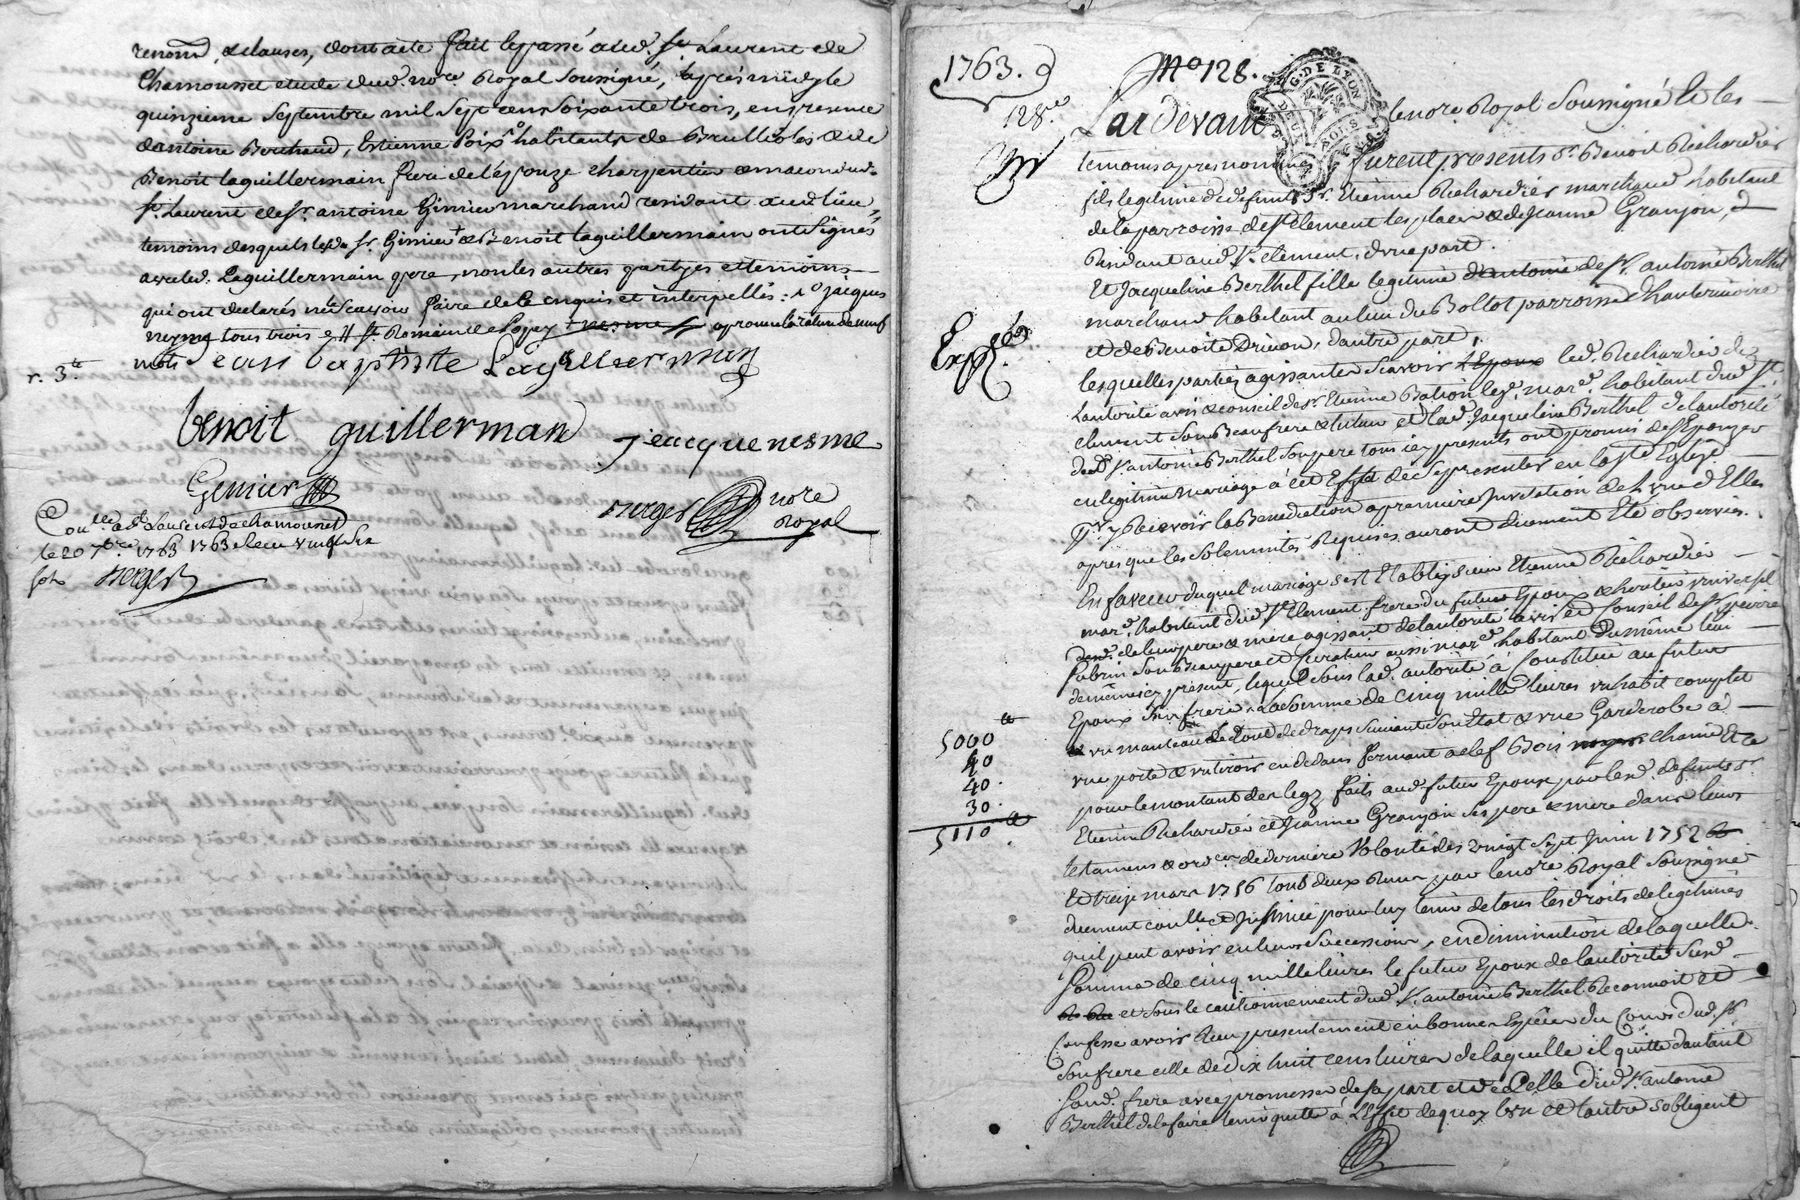 renond. & clauses, dont acte fait & passé aud. st Laurent de
Chamousset etude dud. nore. Royal soussigné, apres midy le
quinzieme septembre mil sept cens soixante trois, en presence
d'antoine Bouchaud, Etienne Poix habitants de Brullioles & de
Benoit Laguillermain frere de l'épouze charpentier & macon dud.
st. Laurent de sr. antoine Ginier marchand residant aud. lieu
temoins desquels led. sr. Ginier & Benoit Laguillermain ont signés
avec led. Laguillermain pere, non les autres partyes et temoins
qui ont declarés ne scavoir faire de ce enquis et interpellés : Jacques
nesme tous trois st. Romain de Popey approuvé la rature de neuf
mots
jean baptiste Laguillermain
r. 3tt.
benoit guillerman
jeacque nesme
Ginier
Berger nore Royal
Conllé a st Laurent de chamousset
le 20 7bre. 1763 1763 Receu vingt six
sols Berger
1763.
128e.
No 128.
G. DE LYON
Pardevant le nore Royal soussigné et les
temoins apres nommés furent presents sr. Benoit Richardier
fils legitime de defunt sr. Etienne Richardier marchand habitant
de la parroisse de st. Clement les places & de Jeanne Granjon,
Residant aud. st. clement, d'une part.
Et Jacqueline Berthel fille legitime de sr. antoine Berthel
marchand habitant au lieu du Bottot parroisse d'hauterivoire
et de Benoite Drivon, d'autre part,
Expé.
lesquelles parties agissantes scavoir led. Richardier de
l'autorité avis & conseil de sr. Etienne Bation mard. habitant dud. st.
clement son Beaufrere & tuteur et lad. Jacqueline Berthel de l'autorité
dud. sr. antoine Berthel son pere tous icy presents ont promis de s'Epouzer
en legitime mariage à cet Effet de se presenter en la ste Eglize
pr. y Recevoir la Benediction a premiere Invitation de l'une d'Elles
apres que les solemnités Requises auront duement Eté observées.
En faveur duquel mariage s'est Etably sieur Etienne Richardier
mard. habitant dud. st. Clement frere du futur Epoux & heritier universel
de leurs pere & mere agissant de l'autorité avis et Conseil de sr. pierre
fabrin son Beaupere et Curateur aussi mard. habitant du même lieu
de même icy present, lequel sous lad. autorité à Constitué au futur
Epoux son frere, la somme de cinq mille livres un habit complet
& un manteau le tout de draps suivant son Etat & une Garderobe à
5000
40
40.
30.
5110.
une porte & un tiroir en dedans fermant a clef Bois chaine Et ce
pour le montant des legs faits aud. futur Epoux par lesd. defunts sr.
Etienne Richardier et Jeanne Granjon ses pere & mere dans leurs
testamens & ordces. de derniere Volonté des vingt sept Juin 1752
Et treize mars 1756 tous deux Reçus par le nore Royal soussigné
duement conllés et Insinués pour luy tenir de tous les droits de legitimes
qu'il peut avoir en leurs successions, en diminution de laquelle
somme de cinq mille livres le futur Epoux de l'autorité susd.
et sous le cautionnement dud. sr. antoine Berthel Reconnoit et
Confesse avoir Reçu presentement en bonnes Especes du Cours dud. sr.
son frere celle de dix huit cens livres de laquelle il quitte d'autant
sond. frere avec promesse de sa part et de Celle dud. sr. antoine
Berthel de la faire tenir quitte à L'Effet de quoy l'un et l'autre s'obligent